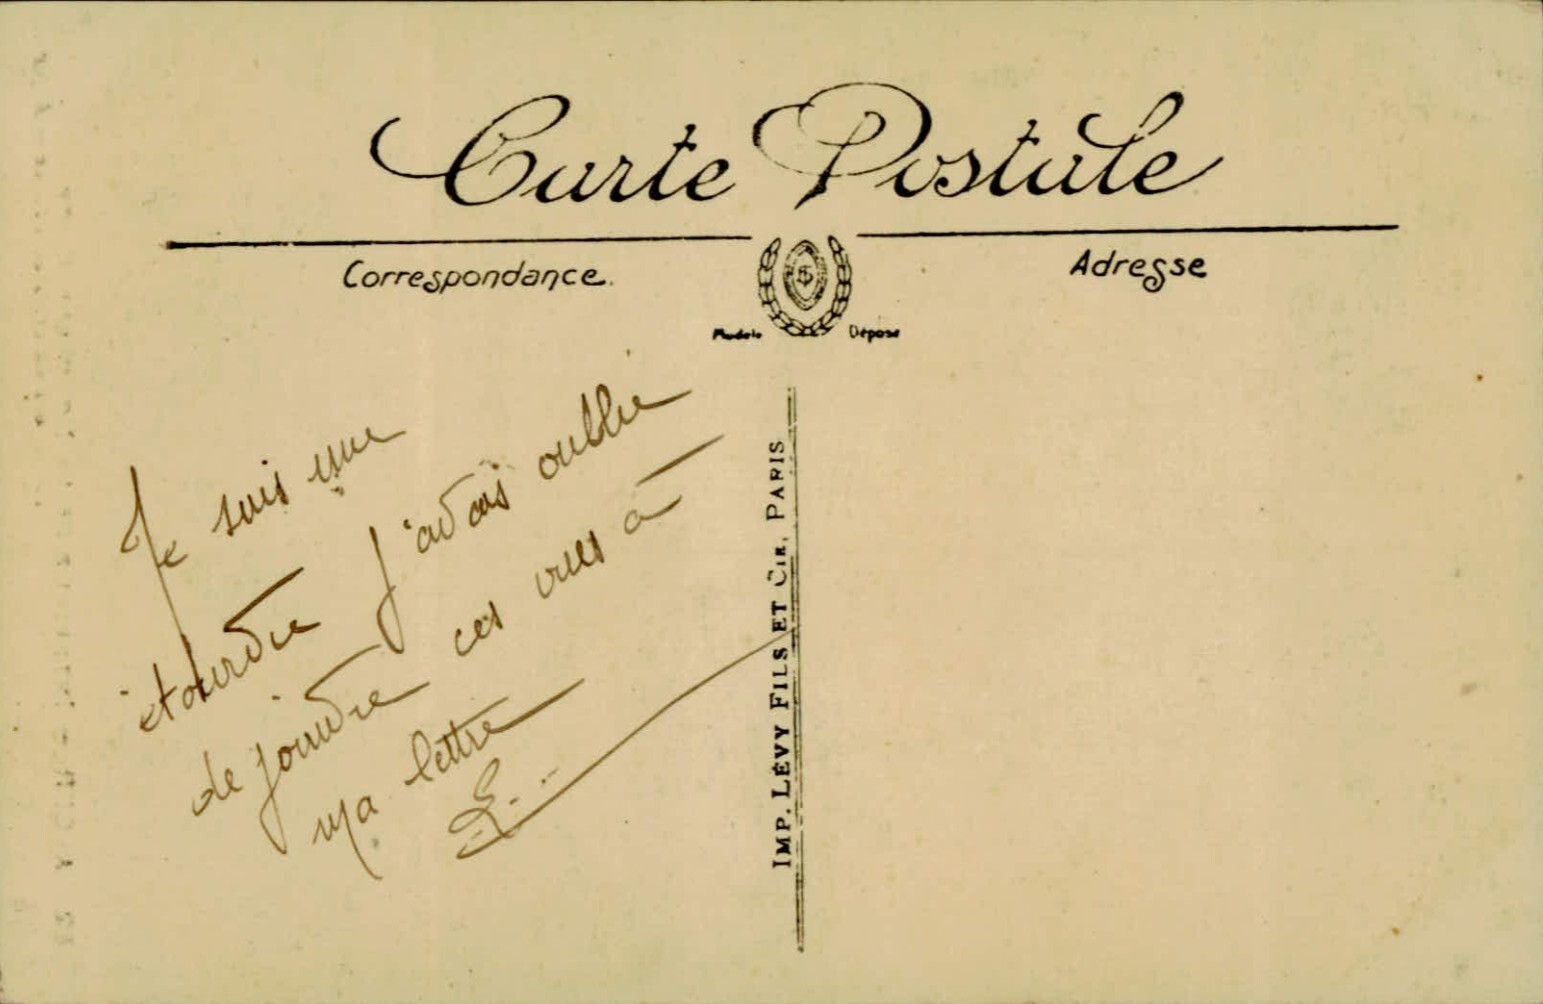 Carte Postale
Correspondance.
Adresse
Modèle Déposé
Je suis une
étourdie j'avais oublié
de joindre ces vues à
ma lettre
IMP. LÉVY FILS ET CIE, PARIS